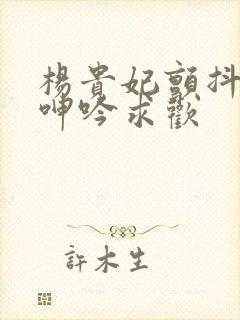 楊貴妃顫抖
呻吟求歡
許木生